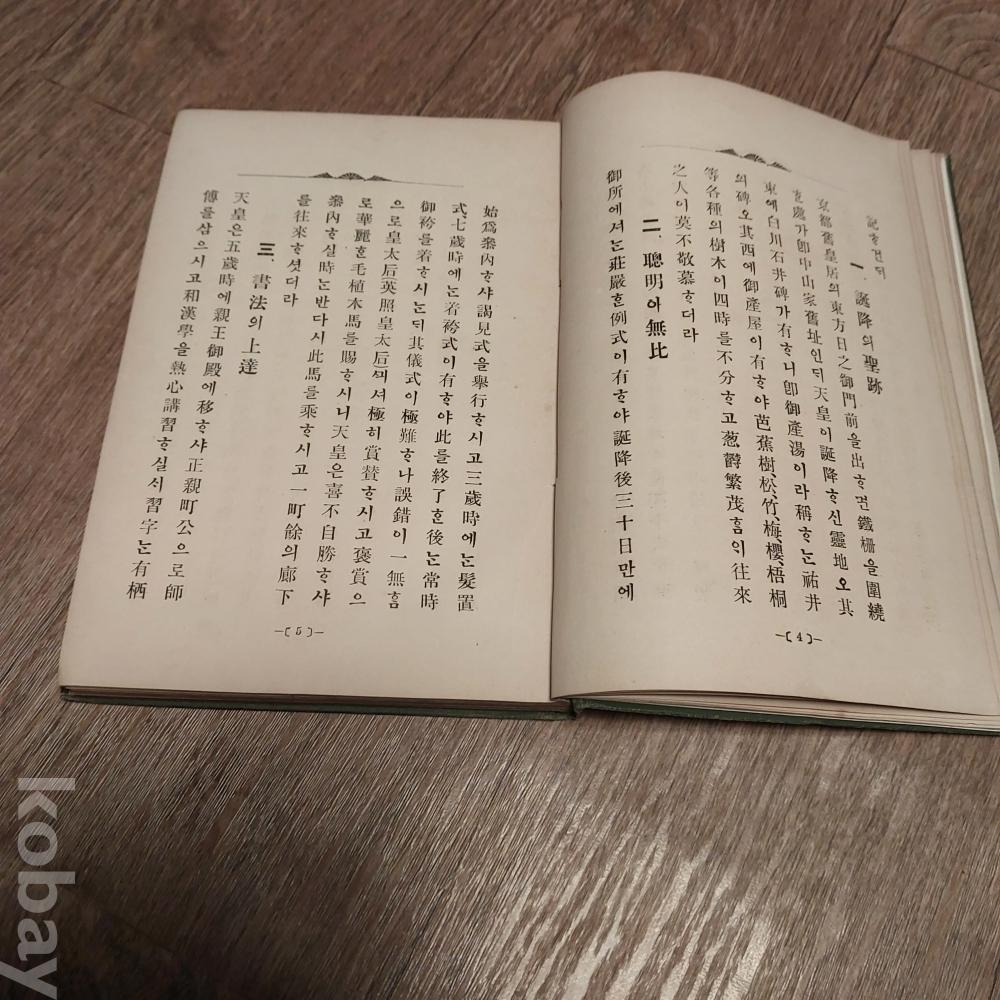 記ᄒᆞ건ᄃᆡ
一、誕降의聖跡
京都舊皇居의東方日之御門前을出ᄒᆞ면鐵柵을圍繞
ᄒᆞᆫ處가卽中山家舊址인ᄃᆡ天皇이誕降ᄒᆞ신靈地오其
東에白川石井碑가有ᄒᆞ니卽御產湯이라稱ᄒᆞᄂᆞᆫ祐井
의碑오其西에御產屋이有ᄒᆞ야芭蕉樹、松、竹、梅、櫻、梧桐
等各種의樹木이四時를不分ᄒᆞ고葱欝繁茂ᄒᆞᆷᄋᆡ往來
之人이莫不敬慕ᄒᆞ더라
二、聰明이無比
御所에셔ᄂᆞᆫ莊嚴ᄒᆞᆫ例式이有ᄒᆞ야誕降後三十日만에
—〔4〕—
始爲叅內ᄒᆞ샤謁見式을擧行ᄒᆞ시고三歲時에ᄂᆞᆫ髮置
式七歲時에ᄂᆞᆫ着袴式이有ᄒᆞ야此를終了ᄒᆞᆫ後ᄂᆞᆫ常時
御袴를着ᄒᆞ시ᄂᆞᆫᄃᆡ其儀式이極難ᄒᆞ나誤錯이一無ᄒᆞᆷ
으로皇太后(英照皇太后)ᄭᅴ셔極히賞賛ᄒᆞ시고褒賞으
로華麗ᄒᆞᆫ毛植木馬를賜ᄒᆞ시니天皇은喜不自勝ᄒᆞ샤
叅內ᄒᆞ실時ᄂᆞᆫ반다시此馬를乘ᄒᆞ시고一町餘의廊下
를往來ᄒᆞ셧더라
三、書法의上達
天皇은五歲時에親王御殿에移ᄒᆞ샤正親町公으로師
傅를삼으시고和漢學을熱心講習ᄒᆞ실ᄉᆡ習字ᄂᆞᆫ有栖
—〔5〕—
kobay